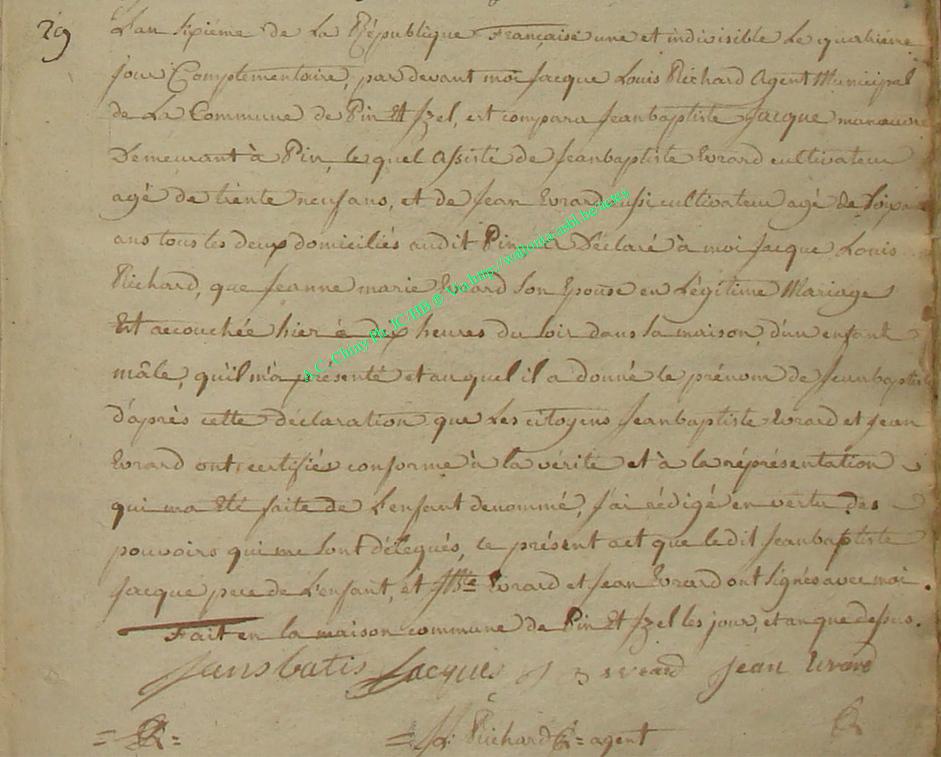 29
L'an sixiéme de La République Française une et indivisible Le quatriéme
jour Complementaire, par devant moi jacque Louis Richard Agent Municipal
de La Commune de Pin Et Izel, est comparu jeanbaptiste jacque manœuvre
Demeurant à Pin, le quel assisté de jeanbaptiste Evrard cultivateur
agé de trente neuf ans, et de jean Evrard aussi cultivateur agé de
ans tous les deux domiciliés audit Pin, A Déclaré à moi jacque Louis
Richard, que jeanne marie Evrard Son Epouse en Légitime Mariage
Est acouchée hier à dix heures du soir dans sa maison, d'un enfant
mâle, qu'il m'a présenté et auquel il a donné le prénom de jeanbaptiste
d'après cette déclaration que Les citoyens jeanbaptiste Evrard et jean
Evrard ont certifiés conforme à la vérité et à la réprésentation
qui ma Eté faite de L'enfant denommé, j'ai rédigé en vertu des
pouvoirs qui me Sont délegués, le présent act que ledit jeanbaptiste
jacque pere de L'enfant, et jBte Evrard et jean Evrard ont Signés avec moi.
Fait en la maison commune de Pin Et Izel les jour, et an que dessus.
jansbatis jacques j B evrard jean Evrard
Richard agent
A.C. Chiny Ph JC HB @ Via http://